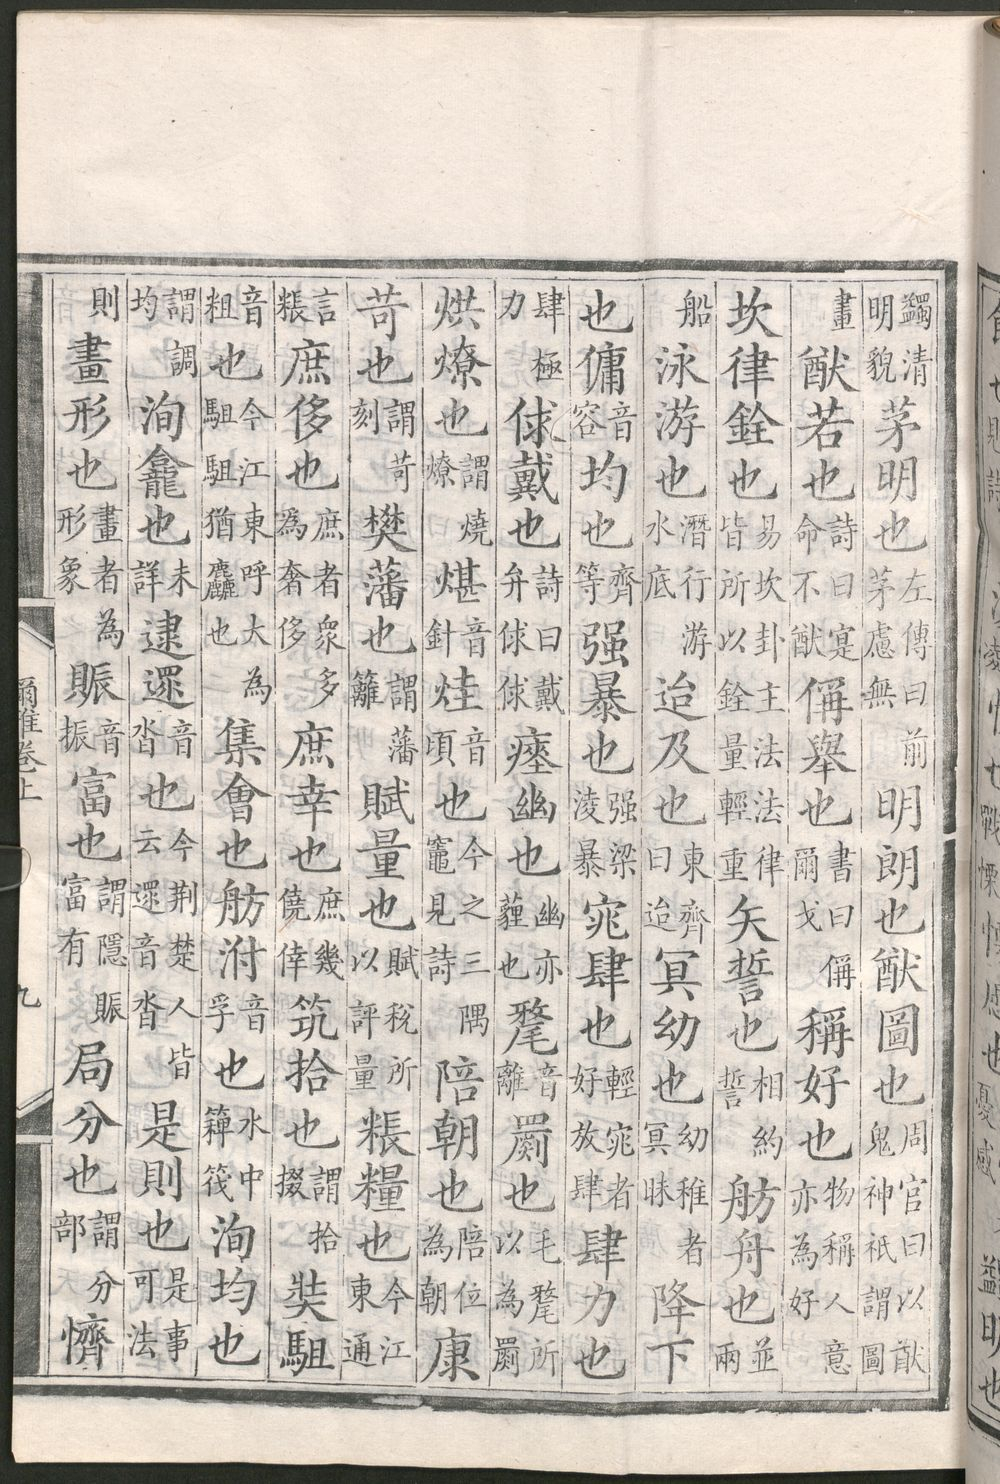 蠲清明貌茅明也左傳曰前茅慮無明朗也猷圖也周官曰以猷鬼神祇謂圖
畫猷若也詩曰寔命不猷偁舉也書曰偁爾戈稱好也物稱人意亦為好
坎律銓也易坎卦主法法律皆所以銓量輕重矢誓也相約誓舫舟也並兩
船泳游也潛行游水底迨及也東齊曰迨冥幼也幼稚者冥昧降下
也傭音容均也齊等强暴也强梁淩暴窕肆也輕窕者好放肆肆力也
肆極力俅戴也詩曰戴弁俅俅瘞幽也幽亦薶也氂音離罽也毛氂所以為罽
烘燎也謂燒燎煁音針烓音頃也今之三隅竈見詩陪朝也陪位為朝康
苛也謂苛刻樊藩也謂藩籬賦量也賦稅所以評量粻糧也今江東通
言粻庶侈也庶者衆多為奢侈庶幸也庶幾僥倖筑拾也謂拾掇奘駔
音粗也今江東呼大為駔駔猶麤也集會也舫泭音孚也水中䉬筏洵均也
謂調均洵龕也未詳逮遝音沓也今荆楚人皆云遝音沓是則也是事可法
則畫形也畫者為形象賑音振富也謂隱賑富有局分也謂分部懠
爾雅卷上
九